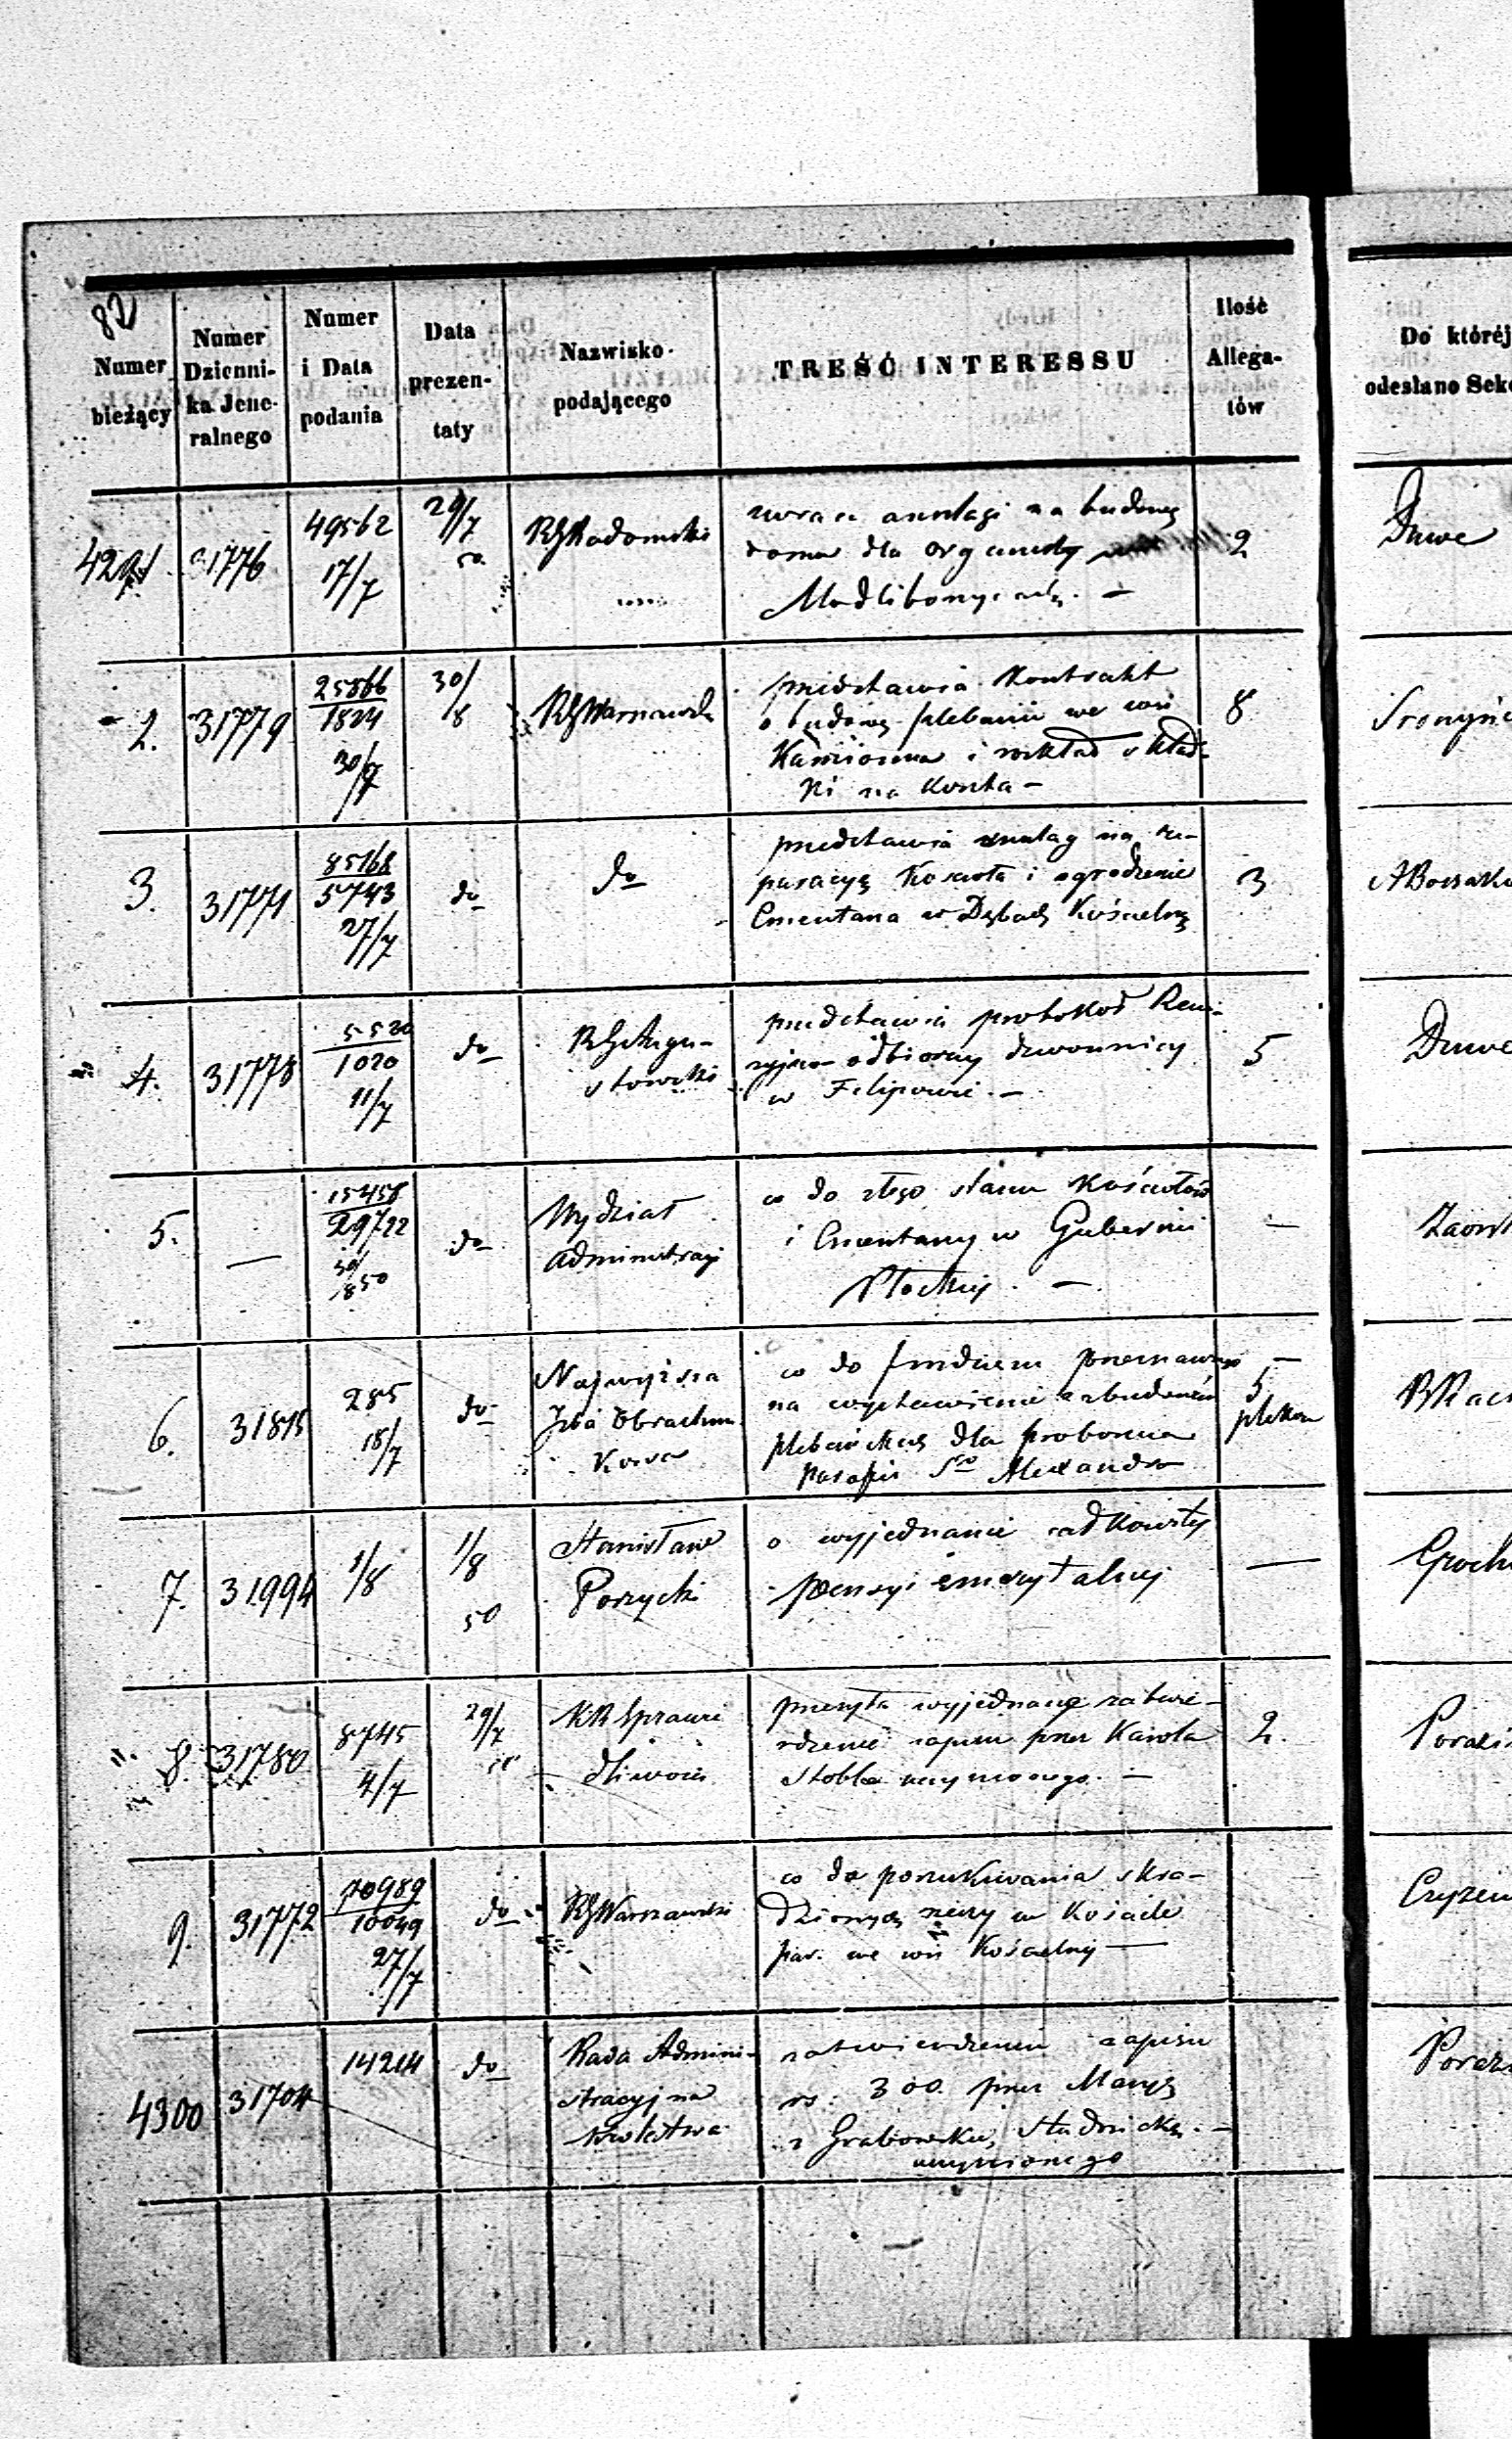 82
Numer bieżący
Numer Dzienni- ka Jene- ralnego
Numer i Data podania
Data prezen- taty
Nazwisko podającego
TREŚĆ INTERESSU
Ilość Allega- tów
Do któréj odesłano Sek
4291 31776 49562 17/7 29/7 50 RGRadomski
zwraca anszlagi na budowę
domu dla organisty
Modliborzycach. —
2
Duwe
2. 31779 25866 1824 30/7 30/8 RGWarszawski
przedstawia kontrakt
o budowę plebanii we wsi
Kamionna i rozkład skład-
ki na koszta —
8
3. 31771 85168 5743 27/7 do do
przedstawia anszlag na re-
paracyę Kościoła i ogrodzenie
Cmentarza w Dębach Kościelnych
3
4. 31778 5520 1020 11/7 do RGAugu-
stowski
przedstawia protokoł Rewi-
zyjno odbiorczy dzwonnicy
w Filipowie. —
5
Duwe
5. — 15458 29722 30/850 do Wydział
Administracyi
co do złego stanu Kościołów
i Cmentarzy w Gubernii
Płockiej. —
—
6. 31815 285 18/7 do Najwyższa
Izba Obrachun
kowa
co do funduszu
na wystawienie zabudowań
plebańskich dla proboszcza
parafii Sgo Alexandra
5
7. 31994 1/8 1/8 50 Stanisław
Porzycki
o wyjednanie całkowitej
pensyi emerytalnej
—
8. 31780 8745 4/7 29/7 KRSprawie
dliwości
przesyła wyjednane zatwie-
rdzenie zapisu przez Karola
Stobla uczynionego. —
2.
9. 31772 70989 10049 27/7 do RGWarszawski
co do poszukiwania skra-
dzionych rzeczy w Kościele
par. we wsi Kościelnej —
4300 31704 14214 do Rada Admini-
stracyjna
Królestwa
zatwierdzeniu zapisu
rs. 300 przez Maryę
z Grabowskich Stadnicką. —
uczynionego